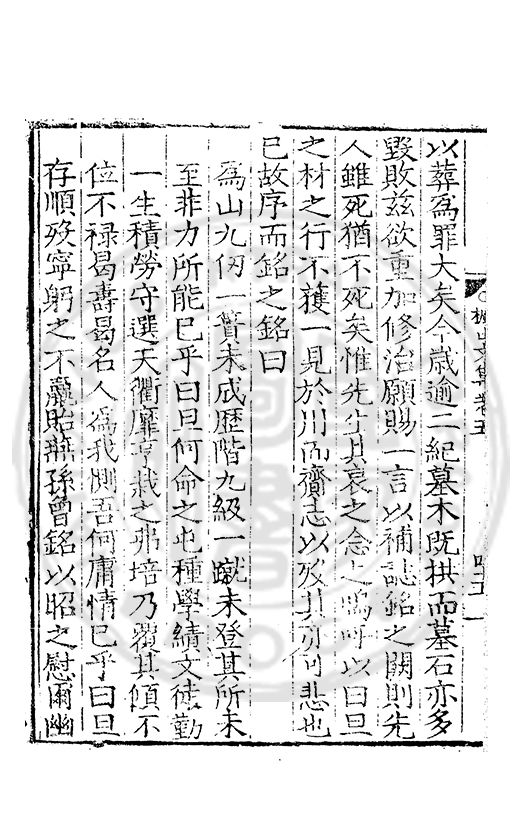 以葬為罪大矣今歲逾二紀墓木既拱而墓石亦多
毀敗茲欲重加修治願賜一言以補誌銘之闕則先
人雖死猶不死矣惟先生其哀之念之嗚呼以曰旦
之材之行不獲一見於川而齎志以歿其亦何悲也
已故序而銘之銘曰
為山九仞一簣未成歷階九級一蹴未登其所未
至非力所能已乎曰旦何命之屯種學績文徒勤
一生積勞守選天衢靡亨栽之弗培乃覆其傾不
位不祿曷壽曷名人為我惻吾何庸情已乎曰旦
存順歿寧躬之不贏貽無孫曾銘以昭之慰爾幽
文集卷五